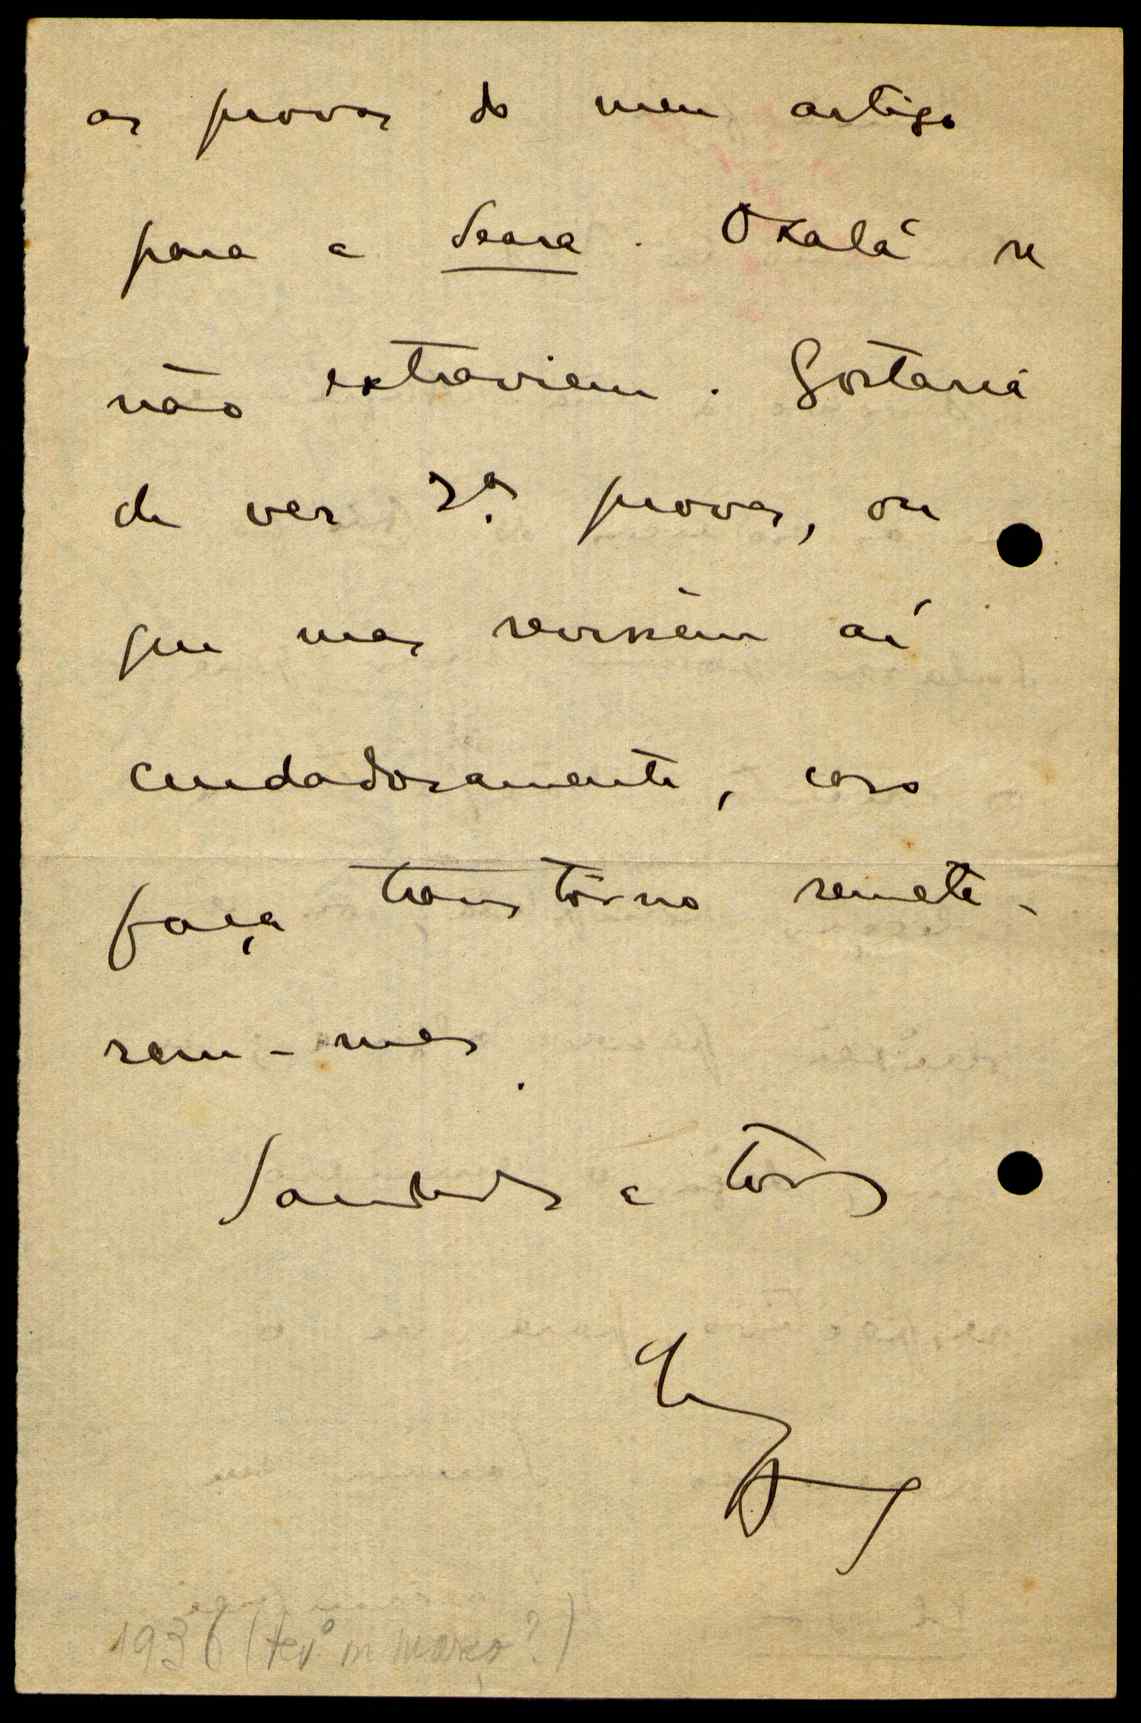 as provas do meu artigo
para a Seara. Oxalá se
não extraviem. Gostaria
de ver 2.as provas, ou
que mas revissem aí
cuidadosamente, caso
faça transtôrno remete-
rem-mas.
Saudades a todos
1936 (fevº ou março?)